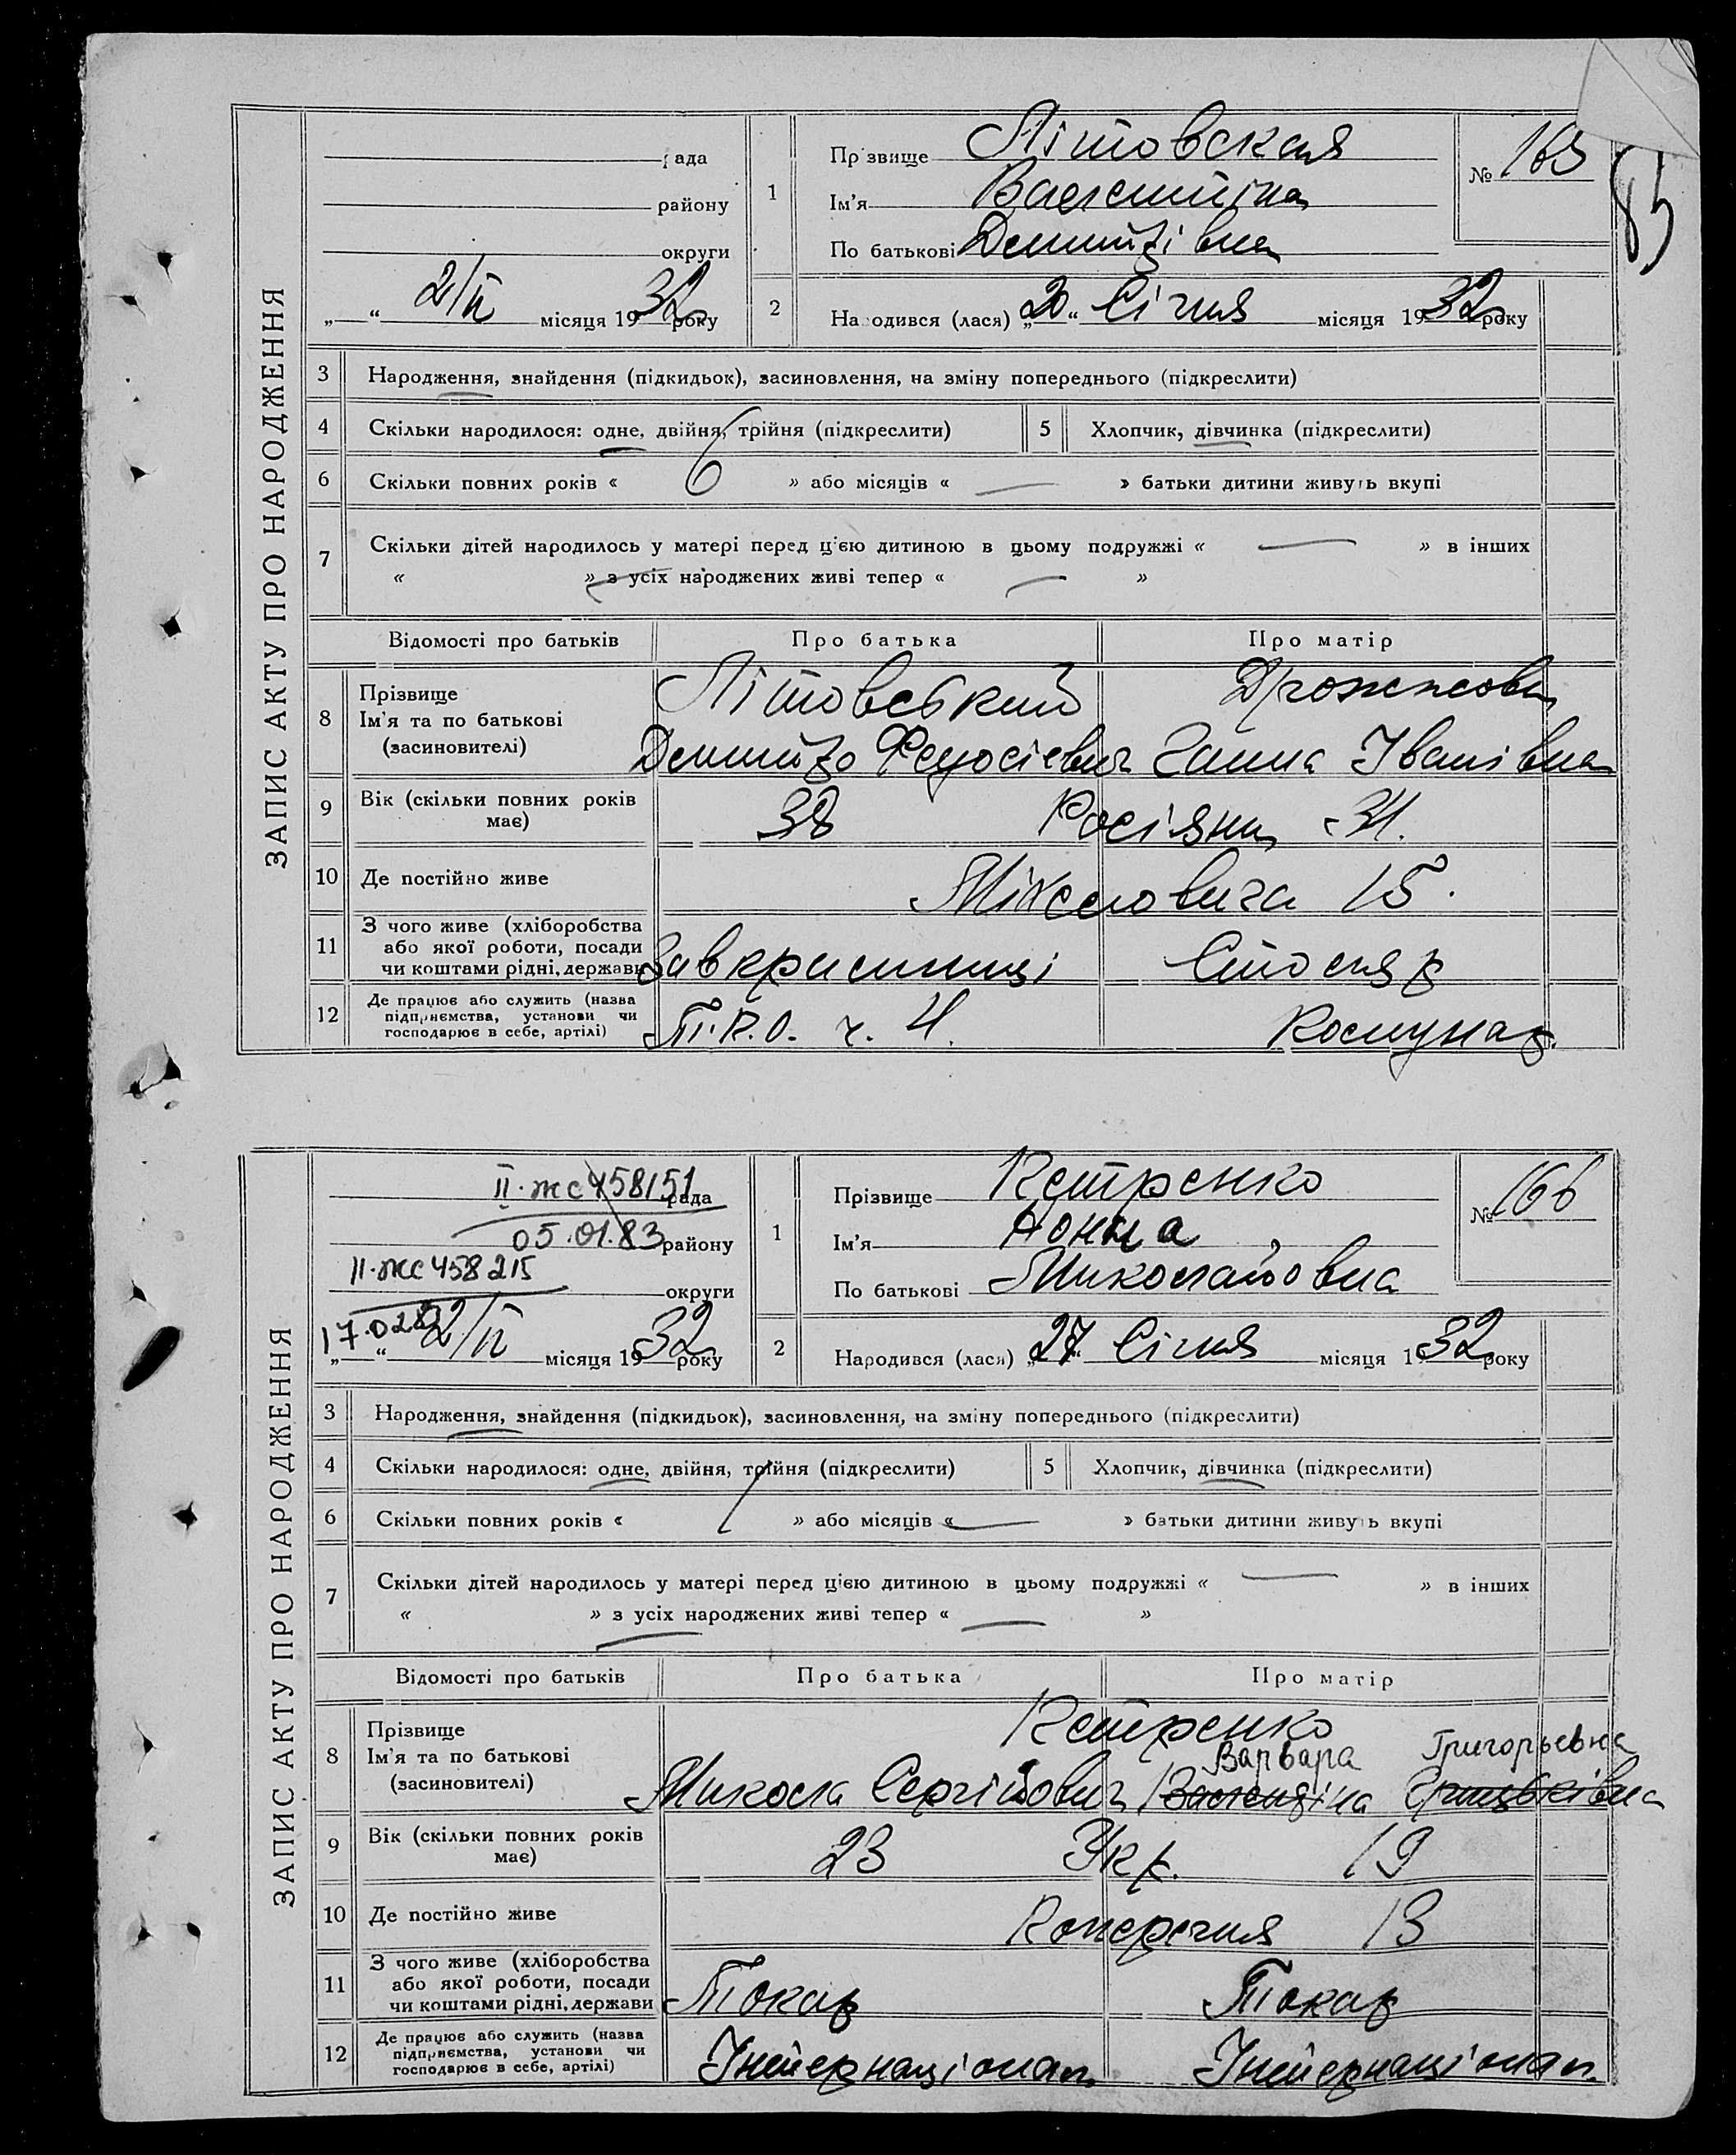 ЗАПИС АКТУ ПРО НАРОДЖЕННЯ
рада
району
округи
2/II місяця 1932 року
1
Прізвище Літовская
Ім'я Валентіна
По батькові Дмитрівна
№ 165
85
2
Народився (лася) „20“ Січня місяця 1932 року
3 Народження, знайдення (підкидьок), засиновлення, на зміну попереднього (підкреслити)
4 Скільки народилося: одне, двійня, трійня (підкреслити) 5 Хлопчик, дівчинка (підкреслити)
6 Скільки повних років « 6 » або місяців « — » батьки дитини живуть вкупі
7 Скільки дітей народилось у матері перед цією дитиною в цьому подружжі « — » в інших
« — » з усіх народжених живі тепер « — »
Відомості про батьків Про батька Про матір
8 Прізвище
Ім'я та по батькові
(засиновителі)
Літовський
Дмитро Федосієвич Ганна Іванівна
9 Вік (скільки повних років має) 38 Росіяни 31.
10 Де постійно живе 15.
11 З чого живе (хліборобства
або якої роботи, посади
чи коштами рідні, держави
Столяр
12 Де працює або служить (назва
підприємства, установи чи
господарює в себе, артілі)
Т.К.О. ч. 4.
Комунар.
ЗАПИС АКТУ ПРО НАРОДЖЕННЯ
II·жс 458151 рада
05.01.83 району
II·жс 458215
округи
17.02.83
2/II місяця 1932 року
1
Прізвище Петренко
Ім'я Нонна
По батькові Миколайовна
№ 166
2
Народився (лася) „27“ Січня місяця 1932 року
3 Народження, знайдення (підкидьок), засиновлення, на зміну попереднього (підкреслити)
4 Скільки народилося: одне, двійня, трійня (підкреслити) 5 Хлопчик, дівчинка (підкреслити)
6 Скільки повних років « 1 » або місяців « — » батьки дитини живуть вкупі
7 Скільки дітей народилось у матері перед цією дитиною в цьому подружжі « — » в інших
« — » з усіх народжених живі тепер « — »
Відомості про батьків Про батька Про матір
8 Прізвище
Ім'я та по батькові
(засиновителі)
Петренко
Варвара Григорьевна
Микола Сергійович
9 Вік (скільки повних років має) 23 Укр. 19
10 Де постійно живе 13
11 З чого живе (хліборобства
або якої роботи, посади
чи коштами рідні, держави
Токар Токар
12 Де працює або служить (назва
підприємства, установи чи
господарює в себе, артілі)
Інтернаціонал Інтернаціонал